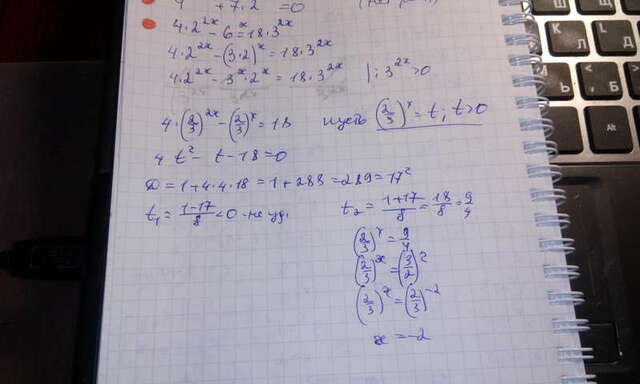 +7·2 =0
4·2^{2x} - 6^x = 18·3^{2x}
4·2^{2x} - (3·2)^x = 18·3^{2x}
4·2^{2x} - 3^x·2^x = 18·3^{2x} |: 3^{2x} >0
4·(2/3)^{2x} - (2/3)^x = 18 пусть (2/3)^x = t; t>0
4t² - t - 18 = 0
D = 1+4·4·18 = 1+288 = 289 = 17²
t₁ = (1-17)/8 < 0 - не уд. t₂ = (1+17)/8 = 18/8 = 9/4
(2/3)^x = 9/4
(2/3)^x = (3/2)^2
(2/3)^x = (2/3)^{-2}
x = -2
Alt